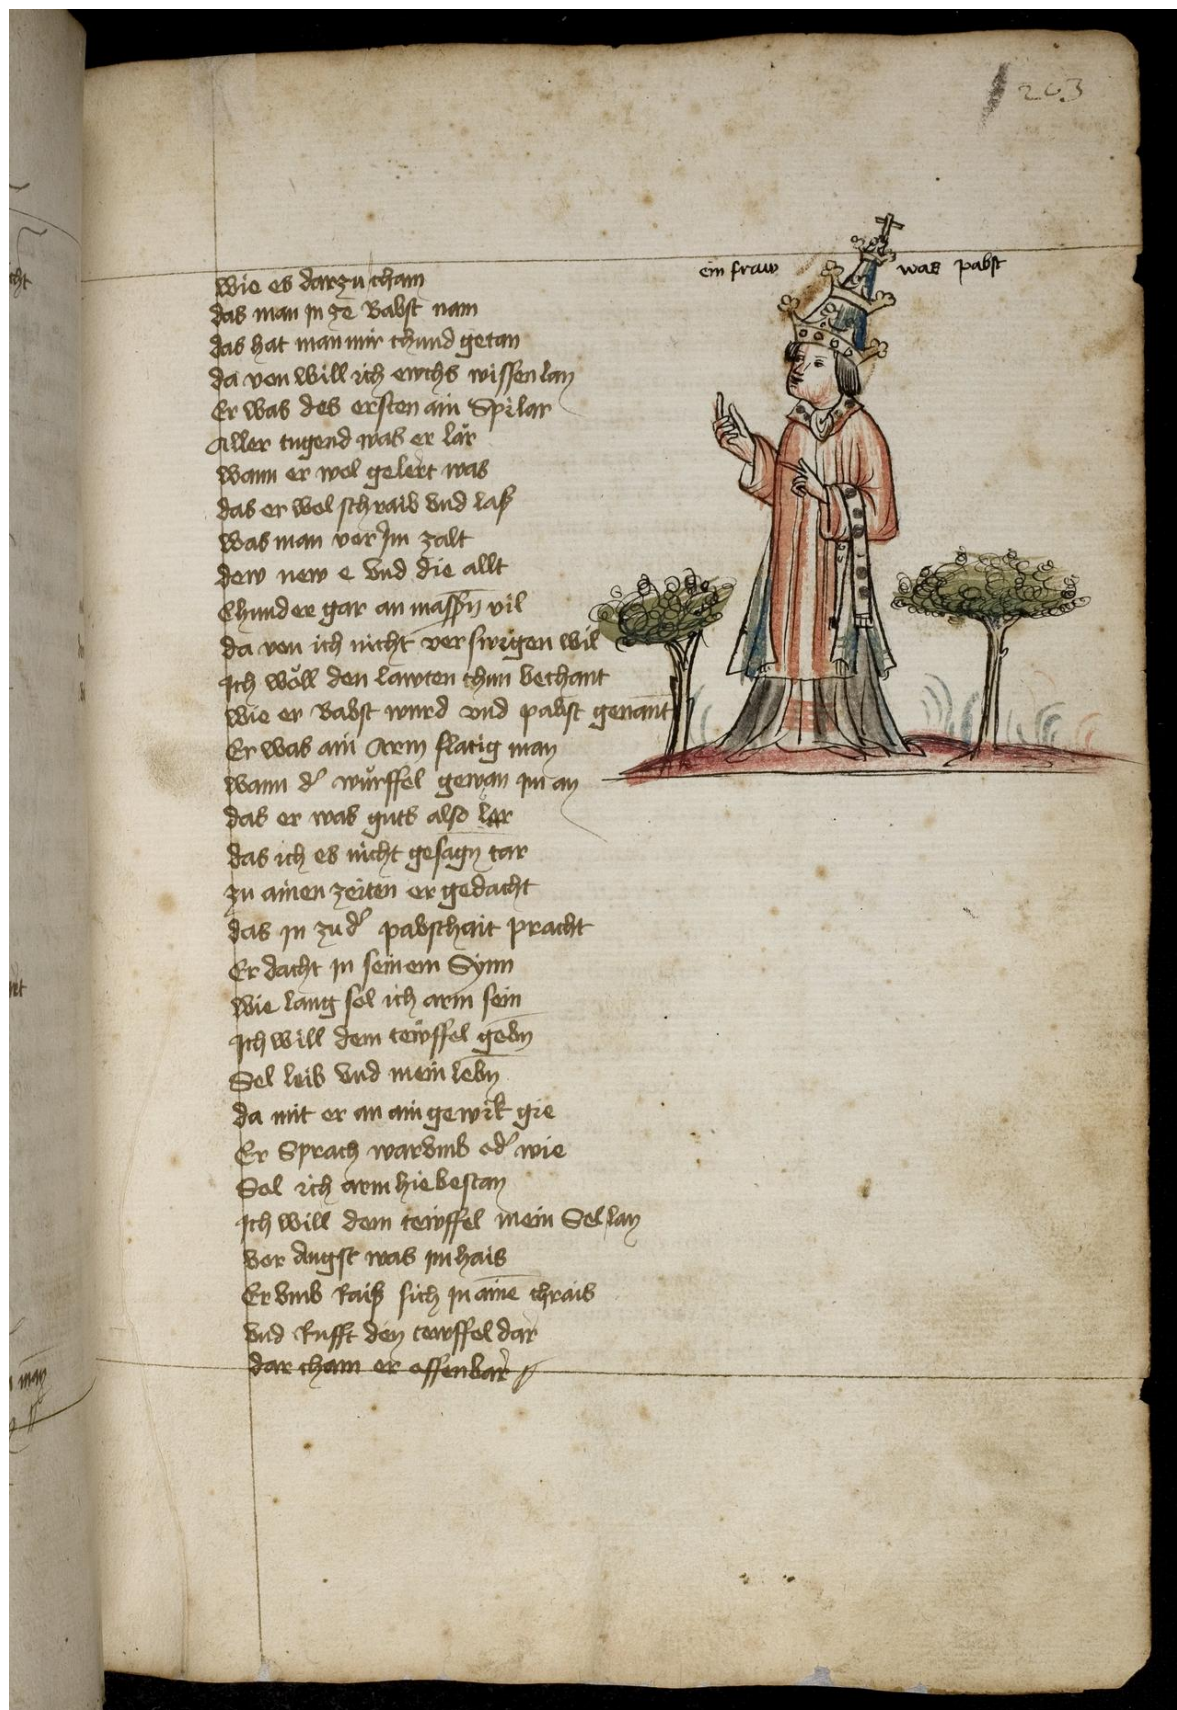 203
ein fraw was pabst
Wie es darzu cham
das man in ze Babst nam
das hat man mir chund getan
da von will ich ewchs wissen lan
Er was des ersten ain Spilar
Aller tugend was er lär
wann er wol gelert was
das er wol schraib vnd las
was man vor Im zalt
dew new e vnd die allt
Chund er gar an massn̄ vil
da von ich nicht verswigen wil
Ich wöll den lawten thun bechant
wie er Babst wurd vnd pabst genant
Er was ain Arm flatig man
wann d' würffel gewan im an
das er was guts also lär
das ich es nicht gesagn̄ tar
zu ainen zeiten er gedacht
das in zu d' pabschait pracht
Er dacht in seinem Synn
wie lang sol ich arm sein
Ich will dem tewffel gebn̄
Sel leib vnd mein lebn̄
da mit er an ain gewik gie
Er Sprach warvmb od' wie
Sol ich arm hie bestan
Ich will dem tewffel mein Sel lan
vor Angst was im hais
Er vmb Raiß sich in aine chrais
vnd Rufft den tewffel dar
dar cham er offenbar